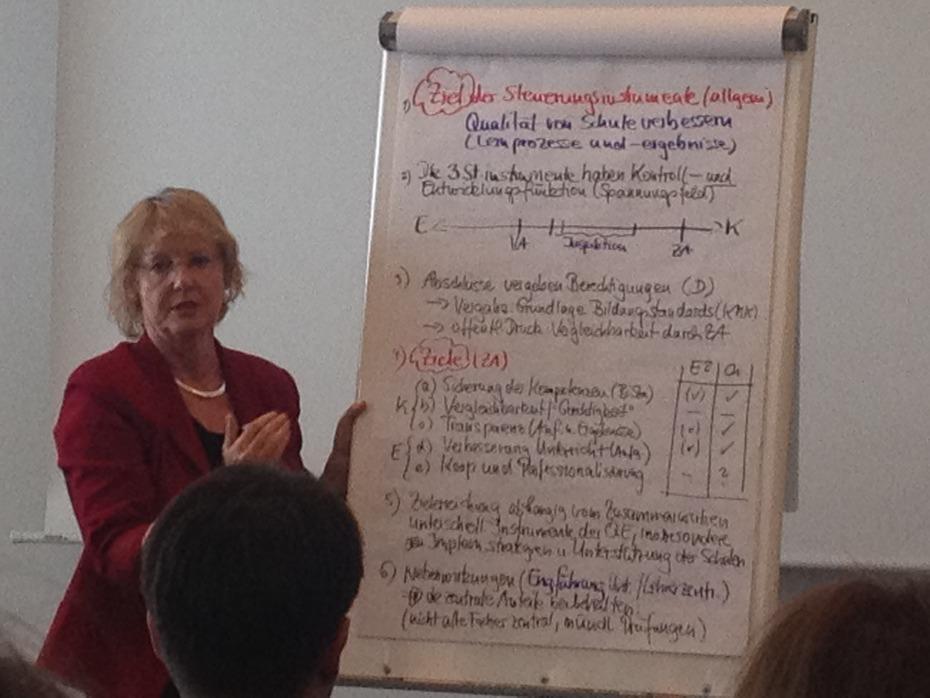 1) Ziel der Steuerungsinstrumente (allgem)
Qualität von Schule verbessern
(Lernprozesse und -ergebnisse)
2) Die 3 St.instrumente haben Kontroll- und
Entwicklungsfunktion (Spannungsfeld)
E K
VA Inspektion ZA
3) Abschlüsse vergeben Berechtigungen (D)
→ Vergabe Grundlage Bildungsstandards (KMK)
→ öffentl. Druck Vergleichbarkeit durch ZA
4) Ziele (ZA)
K { a) Sicherung der Kompetenzen
b) Vergleichbarkeit / "Gerechtigkeit"
c) Transparenz (Anf. u. Ergebnisse)
E { d) Verbesserung Unterricht (Aufg.)
e) Koop und Professionalisierung
(✓) ✓
– –
✓
✓
– ?
5) Zielerreichung abhängig vom Zusammenwirken
unterschiedl. Instrumente der QE, insbesondere
Implem. strategien u Unterstützung der Schulen
6) Nebenwirkungen (Engführung / Lehrerzentr.)
de zentrale Anteile beibehalten
(nicht alle Fächer zentral, mündl Prüfungen)